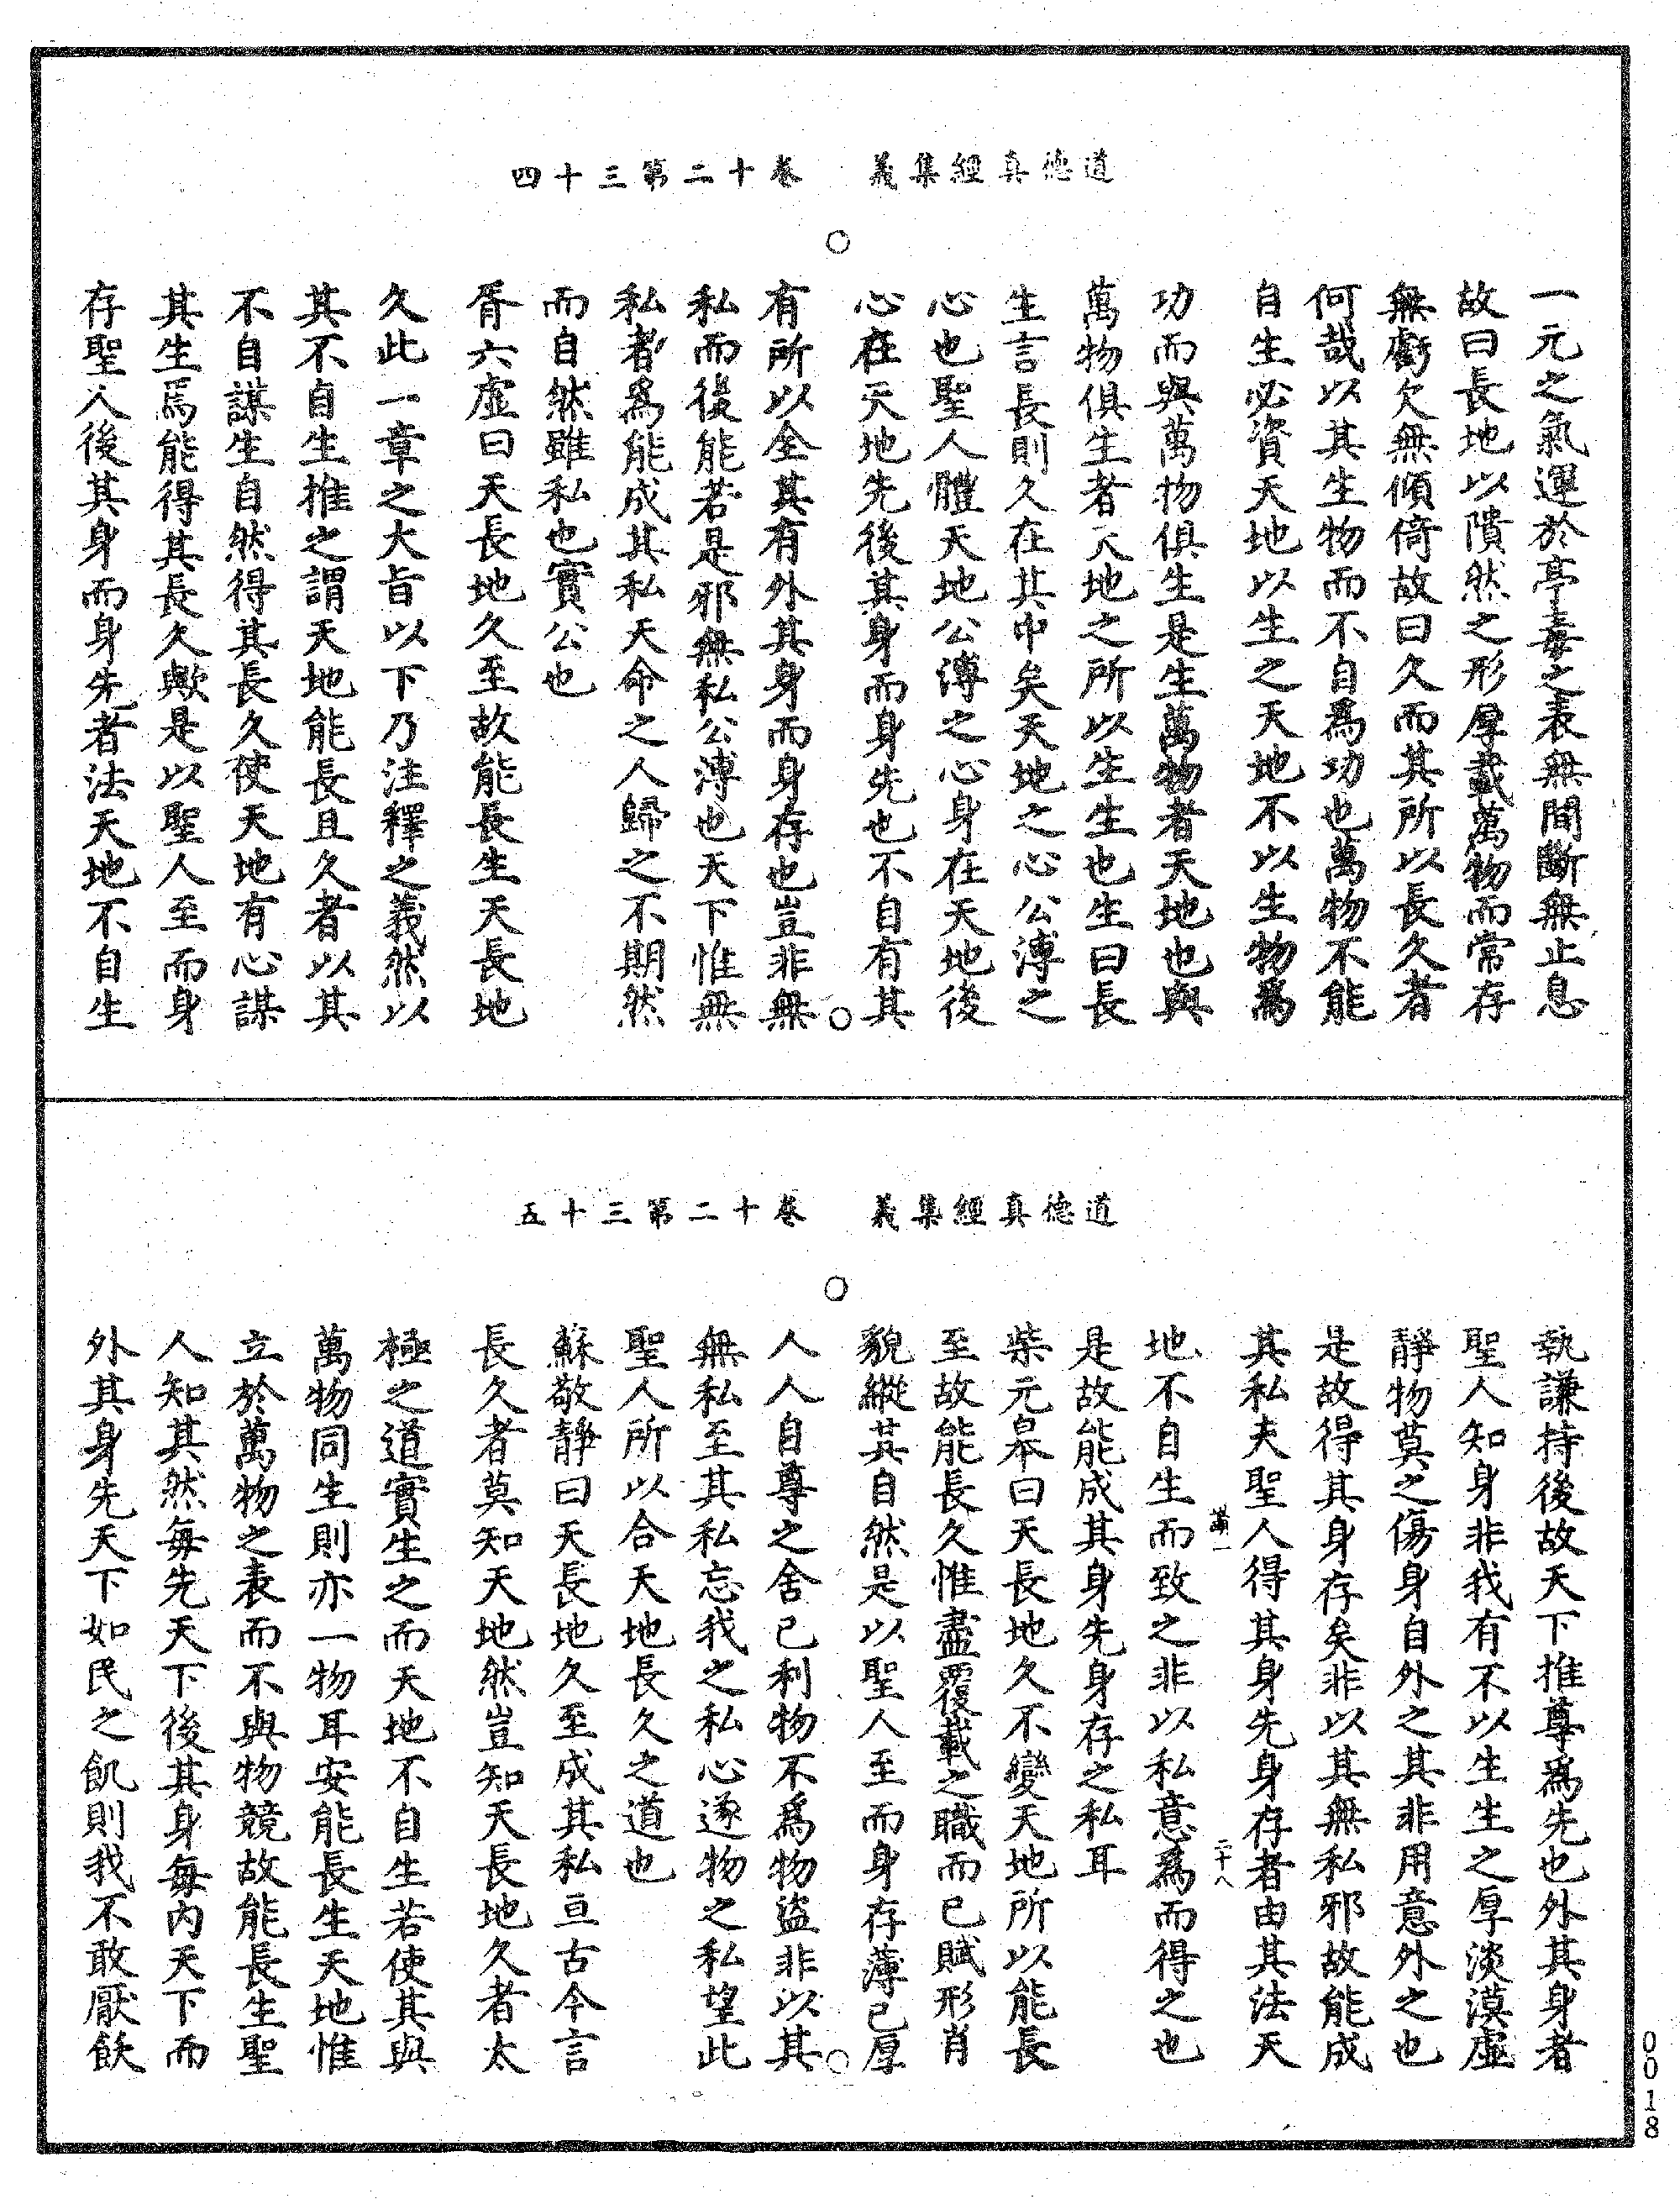 道德真經集義　卷十二第三十四
一元之氣運於亭毒之表無間斷無止息
故曰長地以隤然之形厚載萬物而常存
無虧欠無傾倚故曰久而其所以長久者
何哉以其生物而不自為功也萬物不能
自生必資天地以生之天地不以生物為
功而與萬物俱生是生萬物者天地也與
萬物俱生者天地之所以生生也生曰長
生言長則久在其中矣天地之心公溥之
心也聖人體天地公溥之心身在天地後
心在天地先後其身而身先也不自有其
有所以全其有外其身而身存也豈非無
私而後能若是邪無私公溥也天下惟無
私者為能成其私天命之人歸之不期然
而自然雖私也實公也
胥六虛曰天長地久至故能長生天長地
久此一章之大旨以下乃注釋之義然以
其不自生推之謂天地能長且久者以其
不自謀生自然得其長久使天地有心謀
其生焉能得其長久歟是以聖人至而身
存聖人後其身而身先者法天地不自生
道德真經集義　卷十二第三十五
執謙持後故天下推尊為先也外其身者
聖人知身非我有不以生生之厚淡漠虛
靜物莫之傷身自外之其非用意外之也
是故得其身存矣非以其無私邪故能成
其私夫聖人得其身先身存者由其法天
二十八
地不自生而致之非以私意為而得之也
是故能成其身先身存之私耳
柴元皋曰天長地久不變天地所以能長
至故能長久惟盡覆載之職而已賦形肖
貌縱其自然是以聖人至而身存薄已厚
人人自尊之舍已利物不為物盜非以其
無私至其私忘我之私心遂物之私望此
聖人所以合天地長久之道也
蘇敬靜曰天長地久至成其私亘古今言
長久者莫知天地然豈知天長地久者太
極之道實生之而天地不自生若使其與
萬物同生則亦一物耳安能長生天地惟
立於萬物之表而不與物競故能長生聖
人知其然每先天下後其身每內天下而
外其身先天下如民之飢則我不敢厭飫
0018